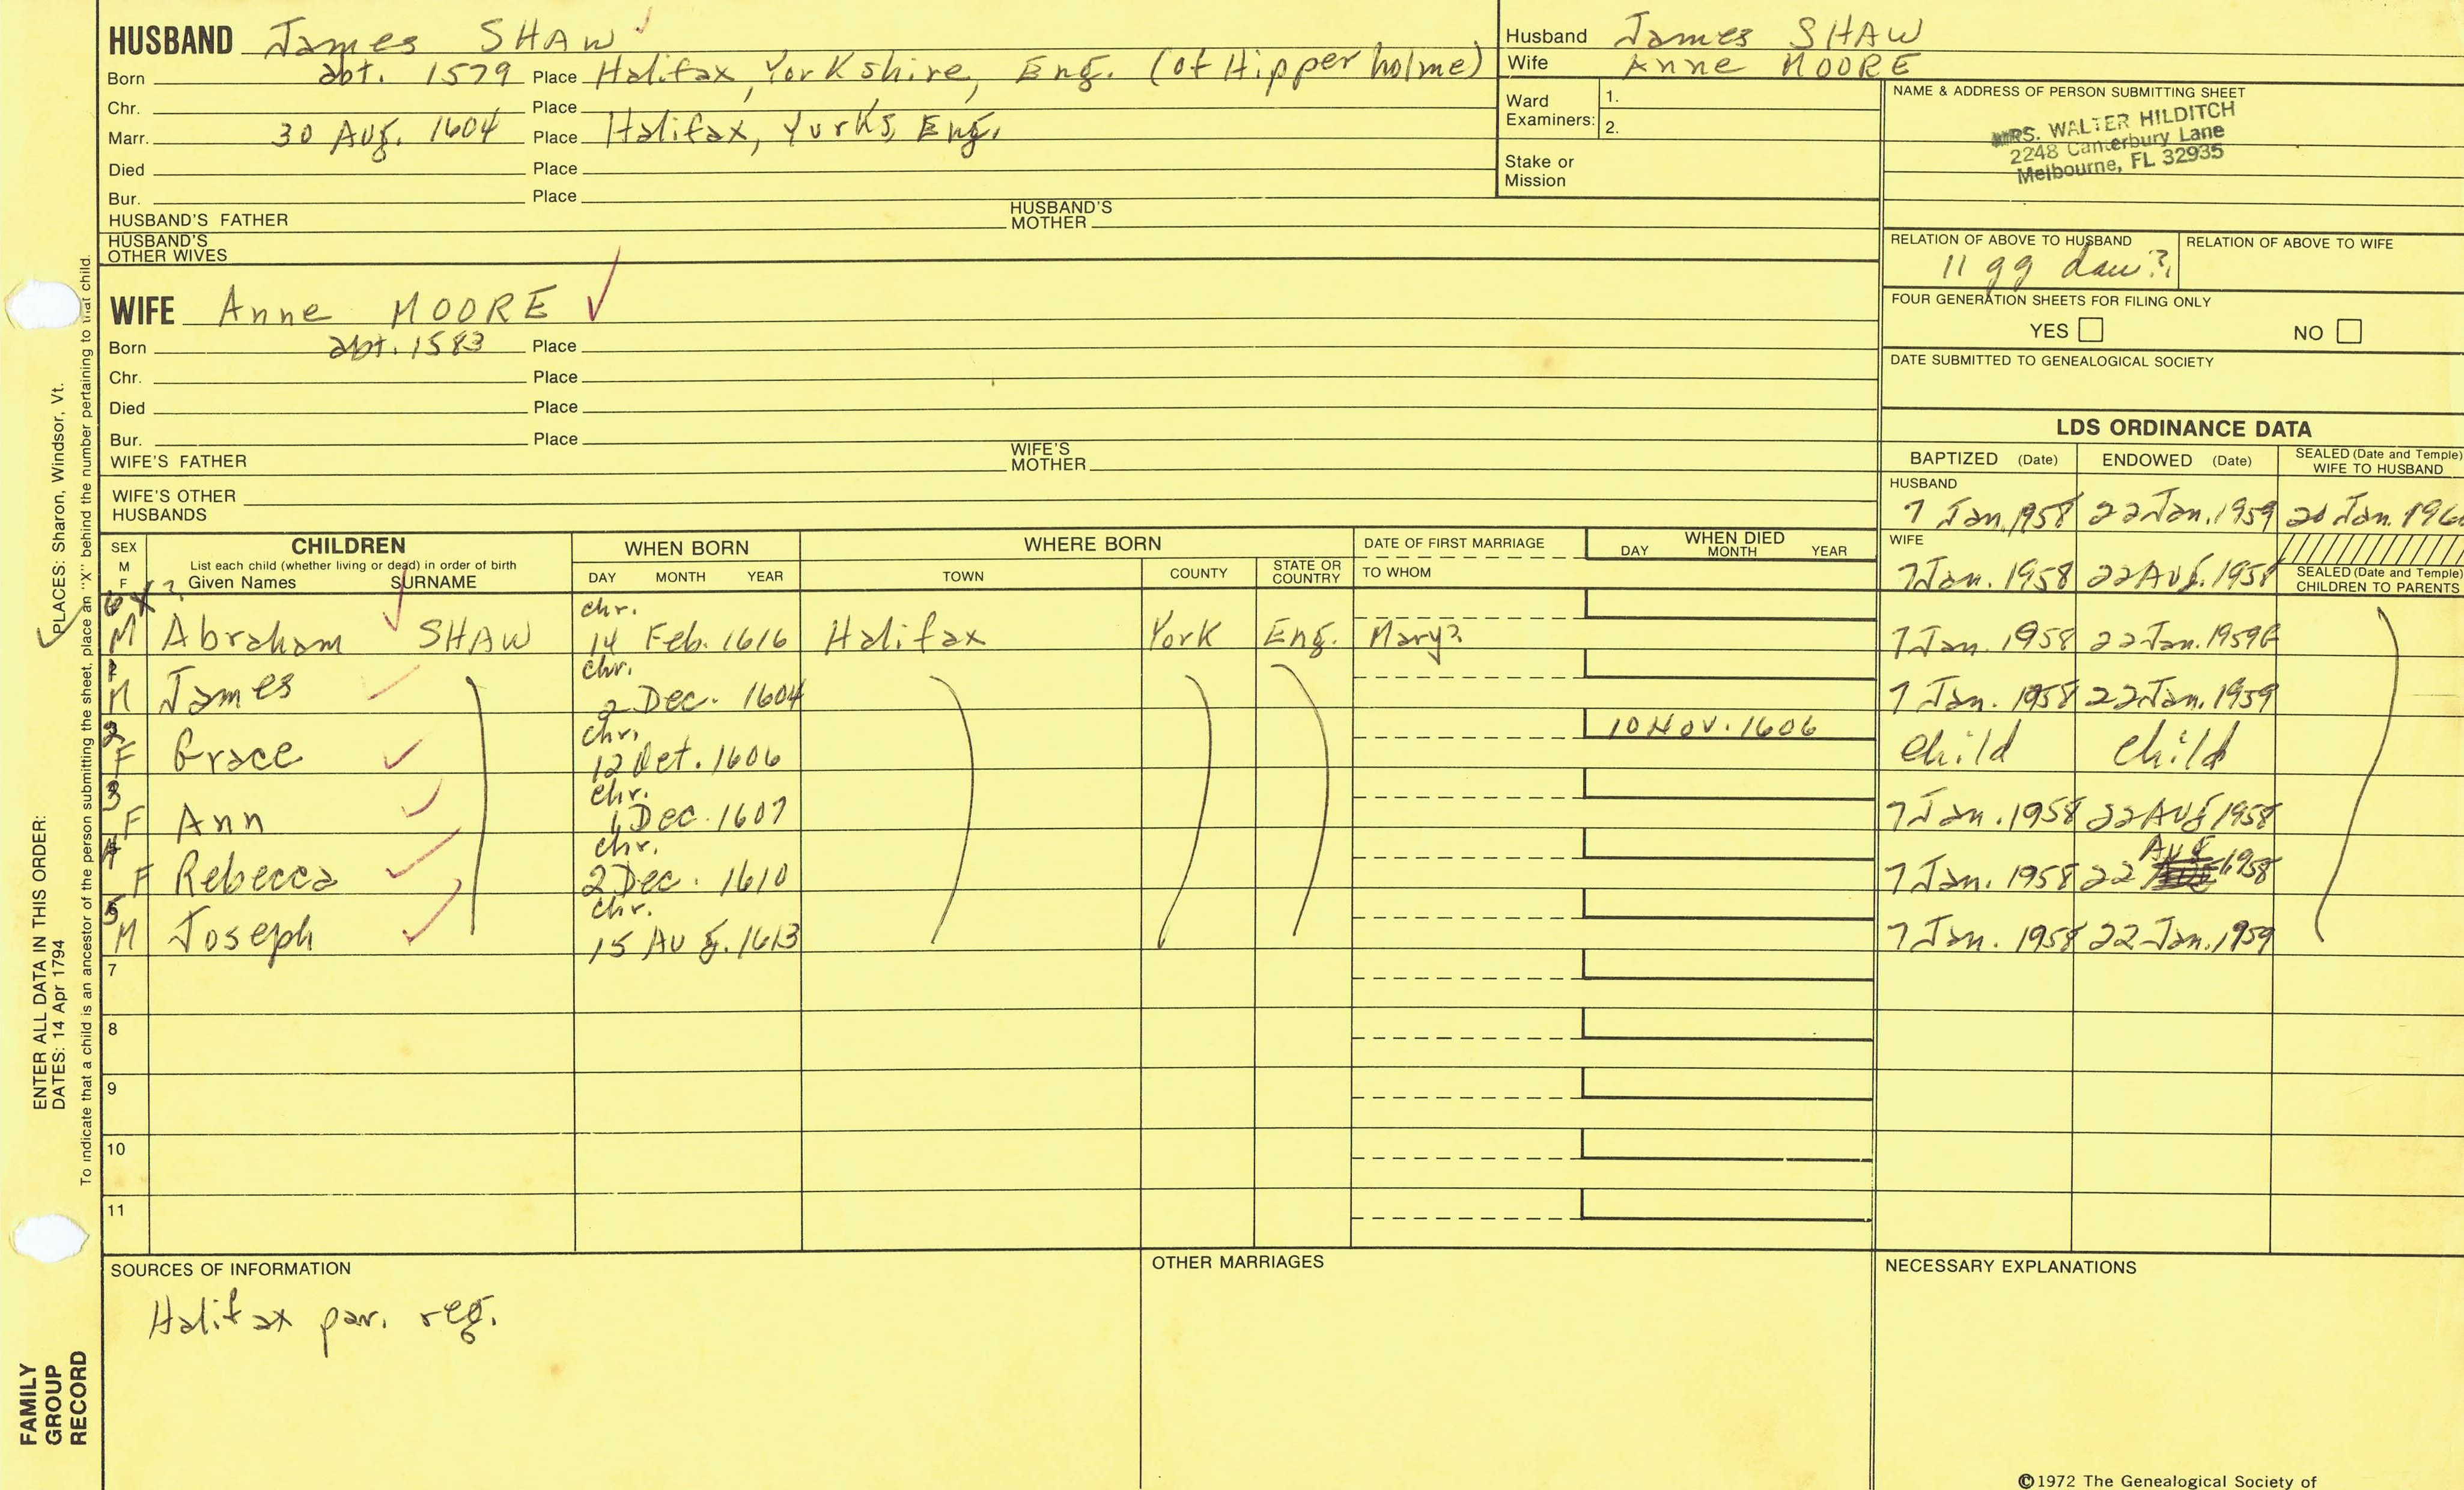 HUSBAND James SHAW
Born abt. 1579 Place Halifax, Yorkshire, Eng. (of Hipperholme)
Chr. Place
Marr. 30 Aug. 1604 Place Halifax, Yorks, Eng.
Died Place
Bur. Place
HUSBAND'S FATHER HUSBAND'S MOTHER
HUSBAND'S OTHER WIVES
Husband James SHAW
Wife Anne MOORE
Ward Examiners: 1.
2.
Stake or Mission
NAME & ADDRESS OF PERSON SUBMITTING SHEET
MRS. WALTER HILDITCH
2248 Canterbury Lane
Melbourne, FL 32935
RELATION OF ABOVE TO HUSBAND RELATION OF ABOVE TO WIFE
11 gg dau?
FOUR GENERATION SHEETS FOR FILING ONLY
YES NO
DATE SUBMITTED TO GENEALOGICAL SOCIETY
WIFE Anne MOORE
Born abt. 1583 Place
Chr. Place
Died Place
Bur. Place
WIFE'S FATHER WIFE'S MOTHER
WIFE'S OTHER HUSBANDS
LDS ORDINANCE DATA
BAPTIZED (Date) ENDOWED (Date) SEALED (Date and Temple) WIFE TO HUSBAND
HUSBAND
7 Jan. 1958 22 Jan. 1959 20 Jan. 196
WIFE
7 Jan. 1958 22 Aug. 1958
SEALED (Date and Temple) CHILDREN TO PARENTS
SEX M F CHILDREN WHEN BORN WHERE BORN DATE OF FIRST MARRIAGE WHEN DIED
List each child (whether living or dead) in order of birth
Given Names SURNAME DAY MONTH YEAR TOWN COUNTY STATE OR COUNTRY TO WHOM DAY MONTH YEAR
6 X? chr.
M Abraham SHAW 14 Feb. 1616 Halifax York Eng. Mary? 7 Jan. 1958 22 Jan. 1959
1 chr.
M James 2 Dec. 1604 7 Jan. 1958 22 Jan. 1959
2 chr. 10 Nov. 1606
F Grace 12 Oct. 1606 child child
3 chr.
F Ann 6 Dec. 1607 7 Jan. 1958 22 Aug 1958
4 chr. Aug
F Rebecca 2 Dec. 1610 7 Jan. 1958 22 1958
5 chr.
M Joseph 15 Aug. 1613 7 Jan. 1958 22 Jan. 1959
7
8
9
10
11
SOURCES OF INFORMATION OTHER MARRIAGES NECESSARY EXPLANATIONS
Halifax par. reg.
©1972 The Genealogical Society of
ENTER ALL DATA IN THIS ORDER:
DATES: 14 Apr 1794 PLACES: Sharon, Windsor, Vt.
To indicate that a child is an ancestor of the person submitting the sheet, place an "X" behind the number pertaining to that child.
FAMILY
GROUP
RECORD